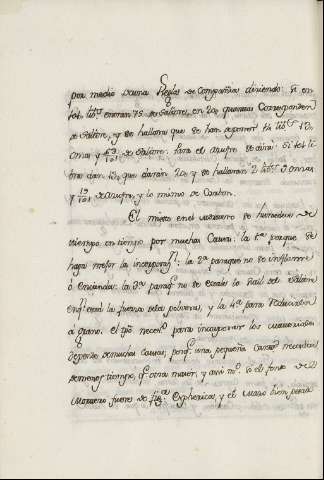 por medio de una Regla de Compañia diciendo: Si en
tos lib.s entran 75 de Salitre, en 20 quantas Corresponden
de Salitre, y se hallara que se han de poner 14 lib.s 13
onzas y de Salitre. Para el azufre se dirá: Si 101 li-
bras dan 13, que daran 20, y se hallaran 2 lib.s 9 onzas
y de azufre, y lo mismo de Carbon.
El mixto en el mortero se humedece de
tiempo en tiempo por muchas Causas: la 1.a porque se
haga mejor la incorporaz.n: la 2.a paraque no se inflame
ó encienda: la 3.a paraq.e no se exale lo sutil del Salitre
enq.e está la fuerza dela polvora, y la 4.a para reducirla
á grano. el tpo neces.o para incorporar los materiales
depende de muchas causas, porq.e una pequeña cantid. necesita
de menos tiempo, q.e otra maior, y assi m.o si el fondo del
Mortero fuere de fig.ra Espherica, y el mazo bien